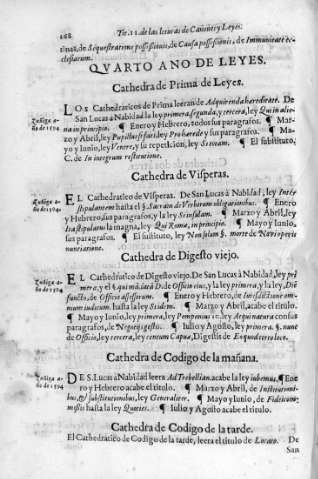 168 Tit.21. de las leturas de Canones y Leyes.
tinas, de Sequestratione possessionis, de Causa possessionis, de Immunitate ec-
clesiarum.
QVARTO ANO DE LEYES.
Cathedra de Prima de Leyes.
LOS Cathedraticos de Prima leeran de Adquirenda hereditate. De
San Lucas a Nabidad la ley primera, segunda, y tercera, ley Qui in alie-
na in principio. ¶ Enero y Hebrero, todos sus paragrafos. ¶ Mar-
zo y Abril, ley Pupillus si fari, ley Pro harede y sus paragrafos. ¶ Ma-
yo y Iunio, ley Ventre, y su repeticion, ley Sciendum. ¶ El substituto,
C. de In integrum restitutione.
Cathedra de Vísperas.
EL Cathedratico de Vísperas. De San Lucas à Nabidad, ley Inter
stipulantem hasta el §. Sacram de Verborum obligationibus. ¶ Enero
y Hebrero, sus paragrafos, y la ley Si insulam. ¶ Marzo y Abril, ley
Ita stipulatus la magna, ley Qui Roma, in principio. ¶ Mayo y Iunio,
sus paragrafos. ¶ El sustituto, ley Non solum §. morte de Novi operis
nuntiatione.
Cathedra de Digesto viejo.
EL Cathedratico de Digesto viejo. De San Lucas à Nabidad, ley pri
mera, y el §. qui mandata D. de Officio eius, y la ley primera, y la ley, Diē
functo, de Officio assessorum. ¶ Enero y Hebrero, de Iurisdictione om-
nium iudicum hasta la ley Si idem. ¶ Marzo y Abril, acabe el titulo.
¶ Mayo y Iunio, ley primera, ley Pomponius, ley Arquinatura con sus
paragrafos, de Negotijs gestis. ¶ Iulio y Agosto, ley primera. §. nunc
de Officio, ley tercera, ley centum Capua, Digestis de Eo quod certo loco.
Cathedra de Codigo de la mañana.
DE S. Lucas à Nabidad leera Ad Trebellian. acabe la ley iubemus. ¶ Ene
ro y Hebrero acabe el titulo. ¶ Marzo y Abril, de Institutioni-
bus, & substitutionibus, ley Generaliter. ¶ Mayo y Iunio, de Fideicom-
missis hasta la ley Quoties. ¶ Iulio y Agosto acabe el titulo.
Cathedra de Codigo de la tarde.
El Cathedratico de Codigo de la tarde, leera el titulo de Locato. De
San